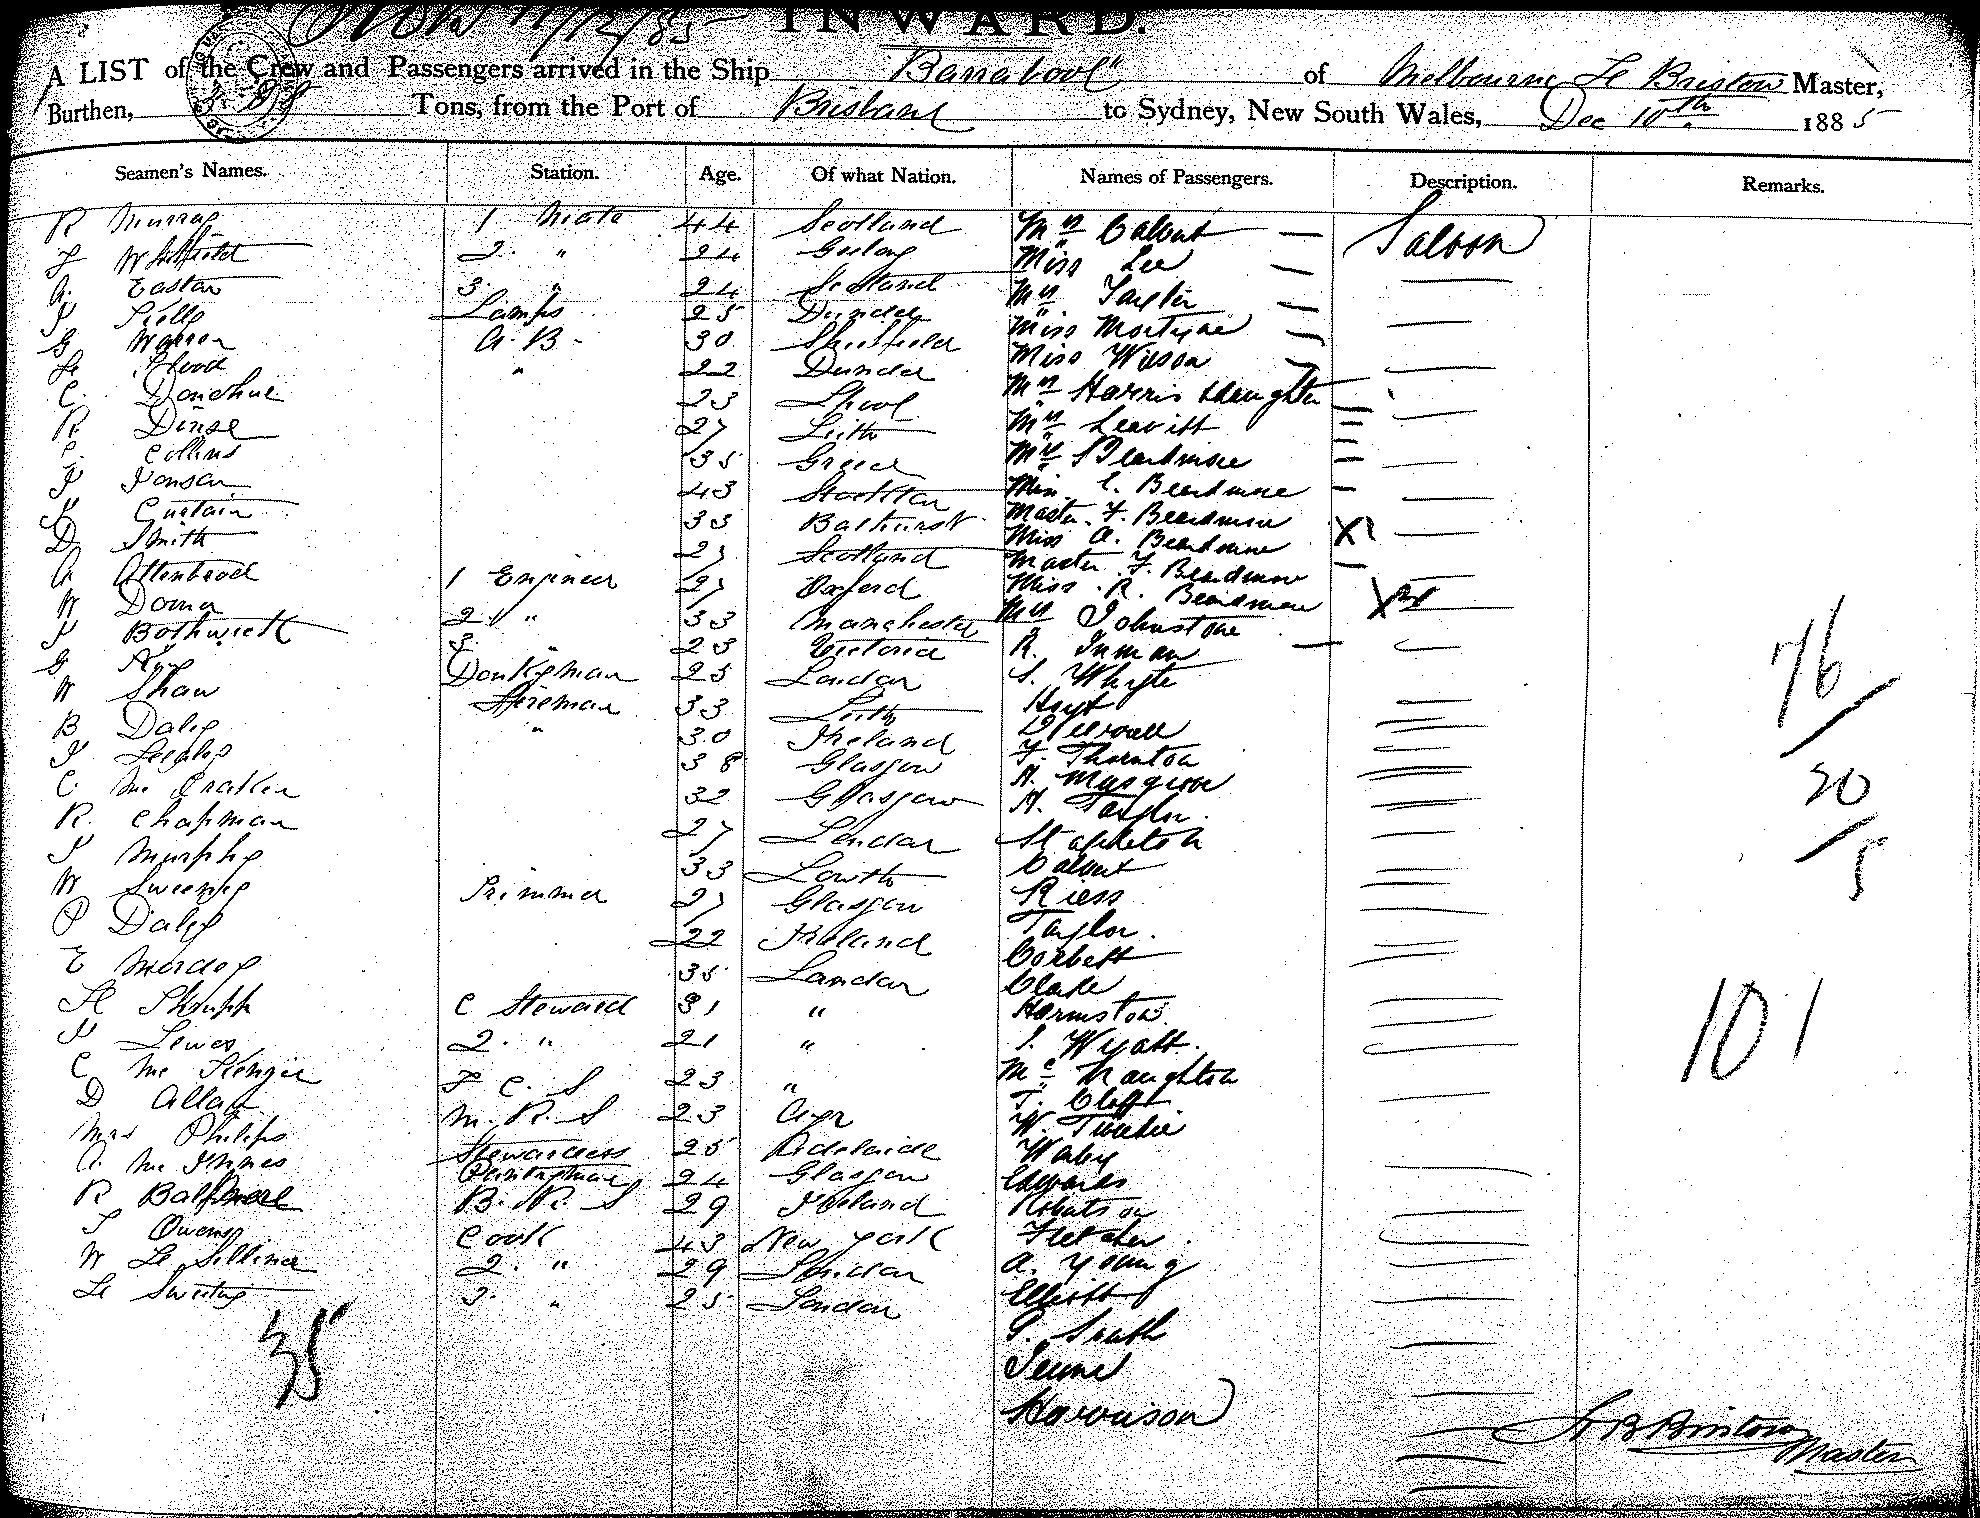 INWARD.
A LIST of the Crew and Passengers arrived in the Ship "Barrabool" of Melbourne H Bristow Master,
Burthen, Tons, from the Port of Brisbane to Sydney, New South Wales, Dec 10th 1885
Seamen's Names. Station. Age. Of what Nation. Names of Passengers. Description. Remarks.
R Murray 1 Mate 44 Scotland Mrs Calvert — Saloon
Whitfield 2 " 24 Geelong Miss Lee —
A. Easton 3 " 24 Scotland Mrs Taylor —
Lamps 25 Dundee Miss Mortyne —
G Warren A.B. 30 Sheffield Miss Wilson —
H Flood " 22 Dundee Mrs Harris & daughter
C. Donohue 23 L'pool Mrs Leavitt
R. Dinse 27 Leith Mrs Beardmore
C. Collins 35 Greece Miss C. Beardmore
J Jonson 43 Stockton Master F. Beardmore
Curtain 33 Bathurst Miss A. Beardmore
D Smith 27 Scotland Master F. Beardmore
A Attenbrood 1 Engineer 27 Oxford Miss R. Beardmore
W Doma 2 " 33 Manchester Mrs Johnstone
J Bothwick 3 " 23 Victoria R. Inman
G Kyp Donkyman 25 London S. Whyte
W Shaw Fireman 33 Leith Hoyt
B Daly " 30 Ireland
J 38 Glasgow F. Thornton
C. Mc Cracken 32 Glasgow A. Musgrove
R. Chapman 27 London H. Taylor
J Murphy 33 Lowth Stapleton
W Sweeney Trimmer 27 Glasgow Calvert
P Daly 22 Ireland Riess
E Merdop 35 London Taylor.
H Shrupp C Steward 31 " Corbett
J Lewes 2. " 21 " Clarke
C Mc Kenzie F C S 23 " Harmston
D Allan M. R. S 23 Ayr S. Wyatt.
Mrs Philips Stewardess 25 Adelaide Mc Naughton
A. Mc Innes Pantryman 24 Glasgow T. Clifft
R B. R. S 29 Ireland W. Tweedie
J Owens Cook 43 New York Waley
W Le Sillina 2. " 29 London Edwards
H Sweeting 3. " 25 London Robertson
Fletcher
A. Young
Elliott
G. South
Jeune
Harrison
35
76
20
5
101
H B Bristow
Master